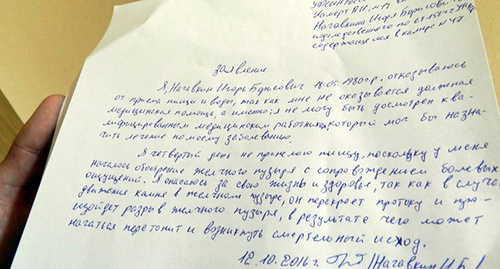 Нагавкина Игоря Борисовича
подследственного по ст.
содержащегося в камере № 47
заявление
Я, Нагавкин Игорь Борисович 14.05.1980 г.р., отказываюсь
от приема пищи и воды, так как мне не оказывается должная
медицинская помощь, а именно: я не могу быть досмотрен ква-
лифицированным медицинским работником, который мог бы назна-
чить лечение по моему заболеванию.
Я четвертый день не принимаю пищу, поскольку у меня
началось обострение желчного пузыря с сопровождением болевых
ощущений. Я опасаюсь за свою жизнь и здоровье, так как в случае
движения камня в желчном пузыре, он перекроет протоку и прои-
зойдет разрыв желчного пузыря, в результате чего может
начаться перетонит и возникнуть смертельный исход.
12.10.2016 г. /Нагавкин И.Б./